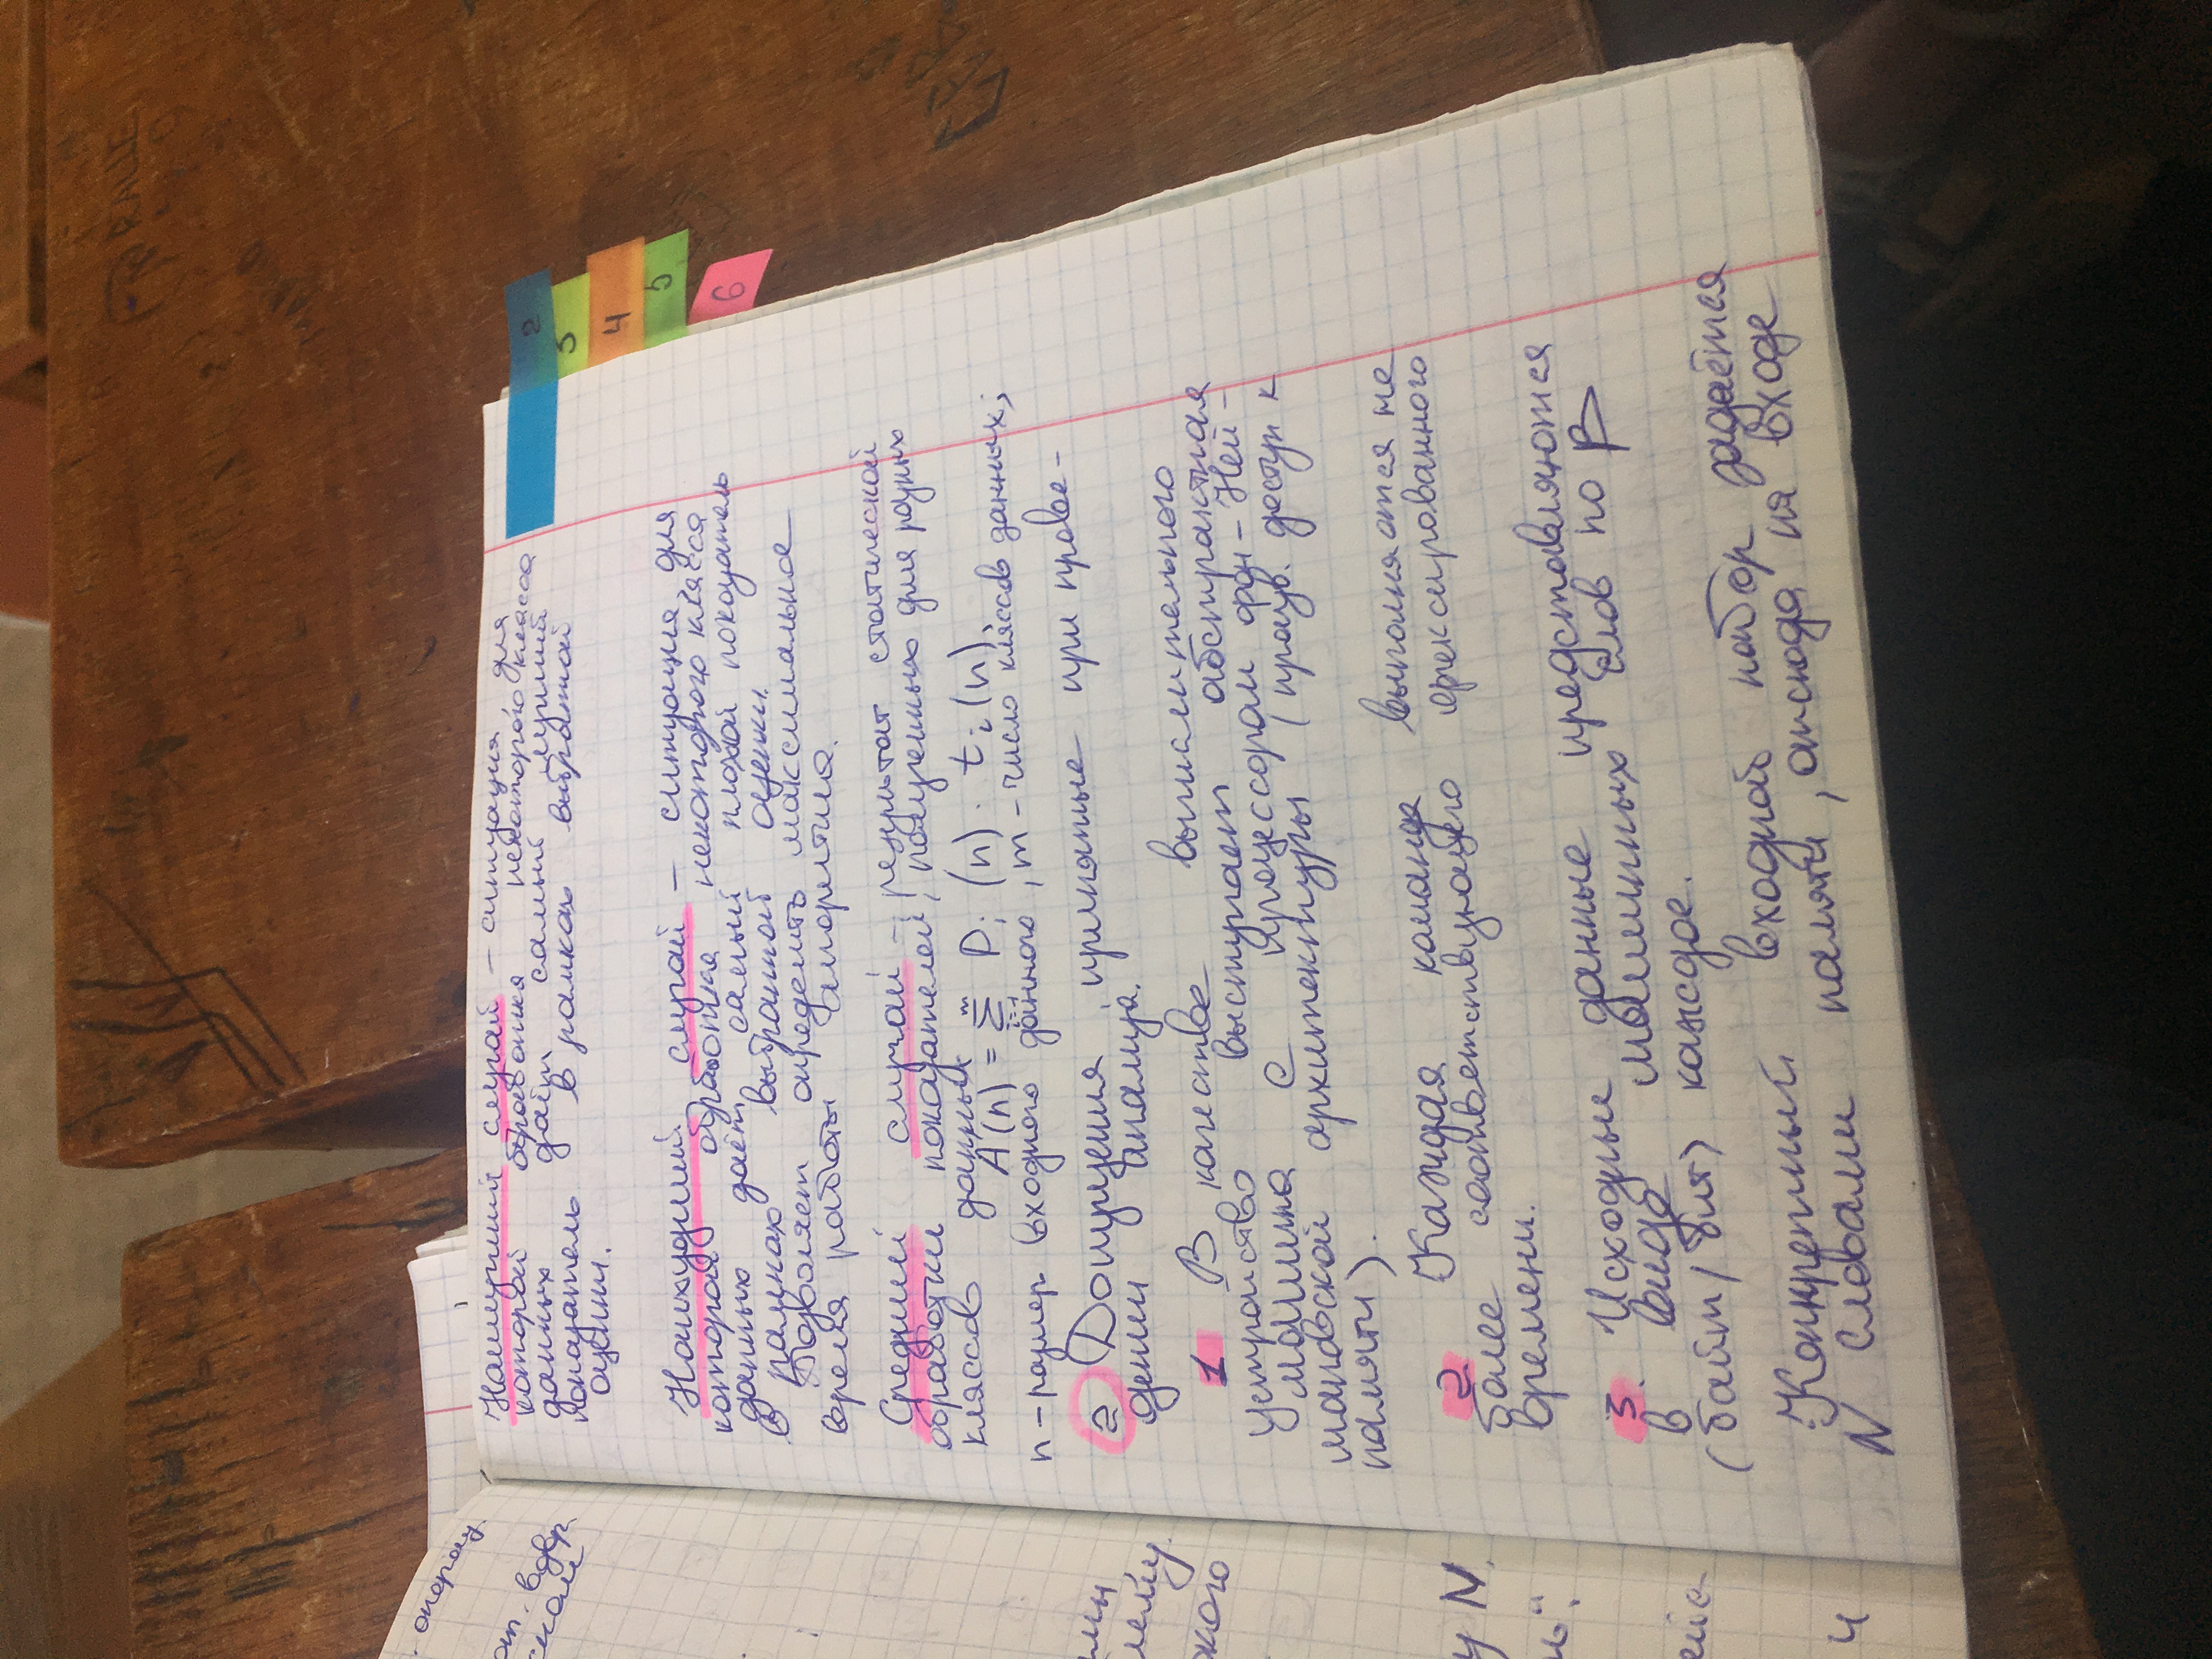 Наилучший случай – ситуация, для
которой обработка некоторого класса
данных даёт самый лучший
показатель в рамках выбранной
оценки.
Наихудший случай – ситуация, для
которой обработка некоторого клясса
данных даёт самый плохой показатель
в рамках выбранной оценки.
Позволяет определить максимальное
время работы алгоритма.
Средний случай – результат статической
обработки показателей, полученных для разных
кляссов данных
A(n) = m Σ Pi (n) · ti (n),
n – размер входного данного, m – число кляссов данных;
2 Допущения, принятые при прове-
дении анализа.
1 В качестве вычислительного
устройство выступает абстрактная
машина с процессором фон-Ней-
мановской архитектуры (произв. доступ к
памяти).
2. Каждая команда выполняется не
более соответствующего фиксированного
времени.
3. Исходные данные представляются
в виде машинных слов по β
(байт/бит) каждое.
Конкретный входной набор задаётся
N словами памяти, отсюда на входе
2
3
4
5
6
у N.
окого
4
RALLE